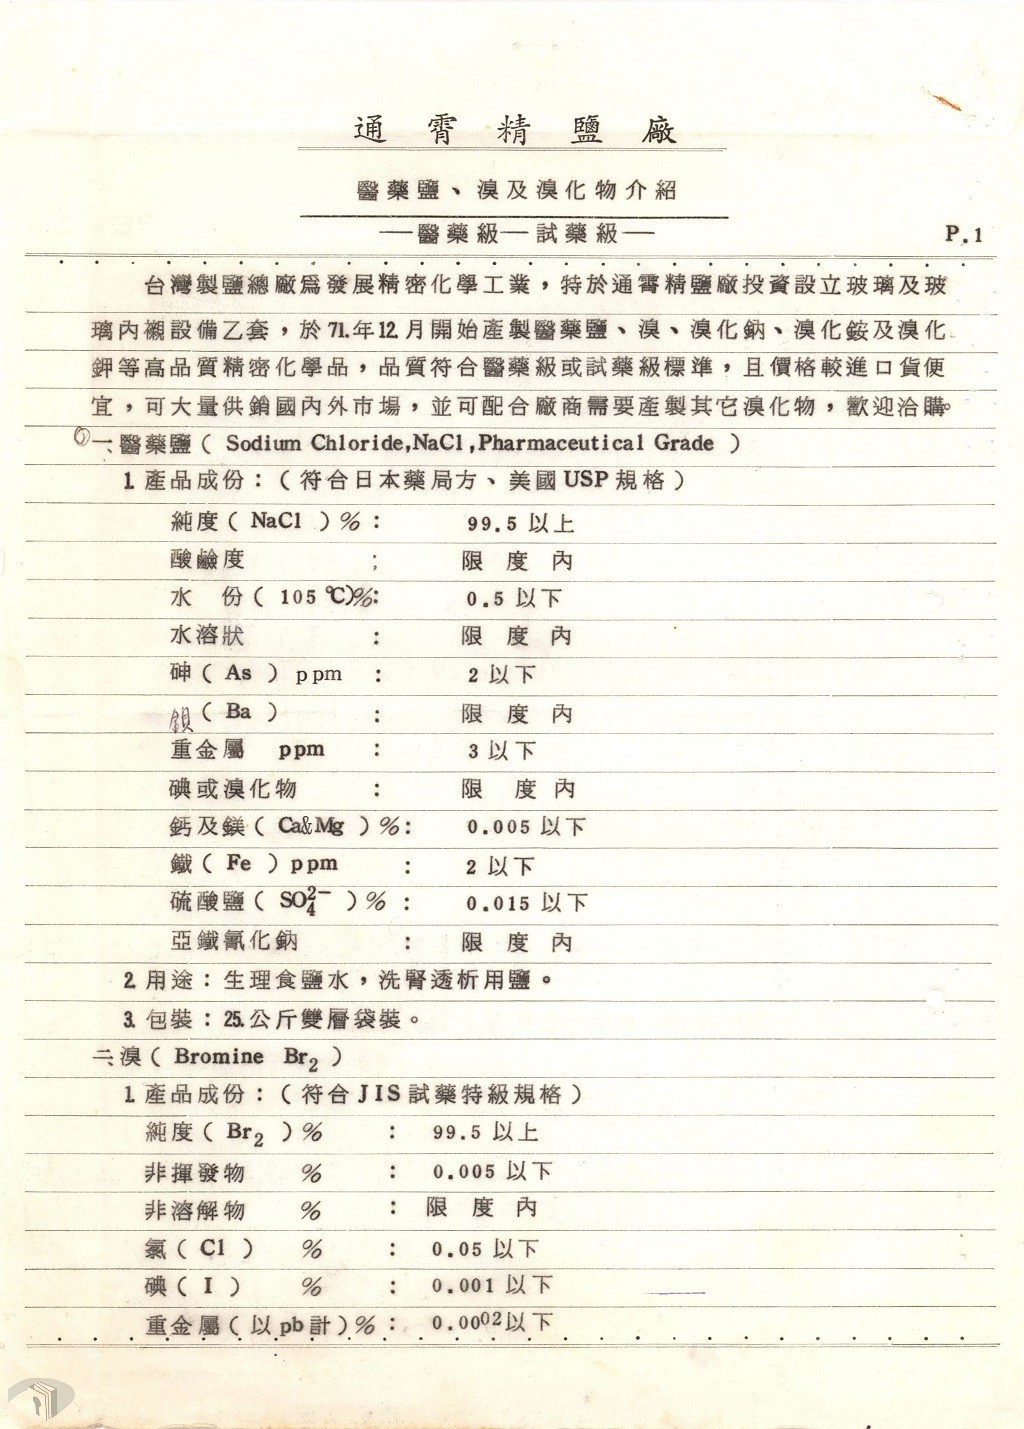 通霄精鹽廠
醫藥鹽、溴及溴化物介紹
—醫藥級—試藥級—
P.1
台灣製鹽總廠爲發展精密化學工業，特於通霄精鹽廠投資設立玻璃及玻
璃內襯設備乙套，於71.年12.月開始產製醫藥鹽、溴、溴化鈉、溴化銨及溴化
鉀等高品質精密化學品，品質符合醫藥級或試藥級標準，且價格較進口貨便
宜，可大量供銷國內外市場，並可配合廠商需要產製其它溴化物，歡迎洽購。
一、醫藥鹽（Sodium Chloride,NaCl,Pharmaceutical Grade）
1.產品成份：（符合日本藥局方、美國USP規格）
純度（NaCl）%：99.5以上
酸鹼度；限度內
水 份（105℃)%：0.5以下
水溶狀：限度內
砷（As）ppm：2以下
鋇（Ba）：限度內
重金屬 ppm：3以下
碘或溴化物：限度內
鈣及鎂（Ca&Mg）%：0.005以下
鐵（Fe）ppm：2以下
硫酸鹽（SO₄²⁻）%：0.015以下
亞鐵氰化鈉：限度內
2.用途：生理食鹽水，洗腎透析用鹽。
3.包裝：25.公斤雙層袋裝。
二、溴（Bromine Br₂）
1.產品成份：（符合JIS試藥特級規格）
純度（Br₂）%：99.5以上
非揮發物 %：0.005以下
非溶解物 %：限度內
氯（Cl） %：0.05以下
碘（I） %：0.001以下
重金屬（以pb計）%：0.0002以下